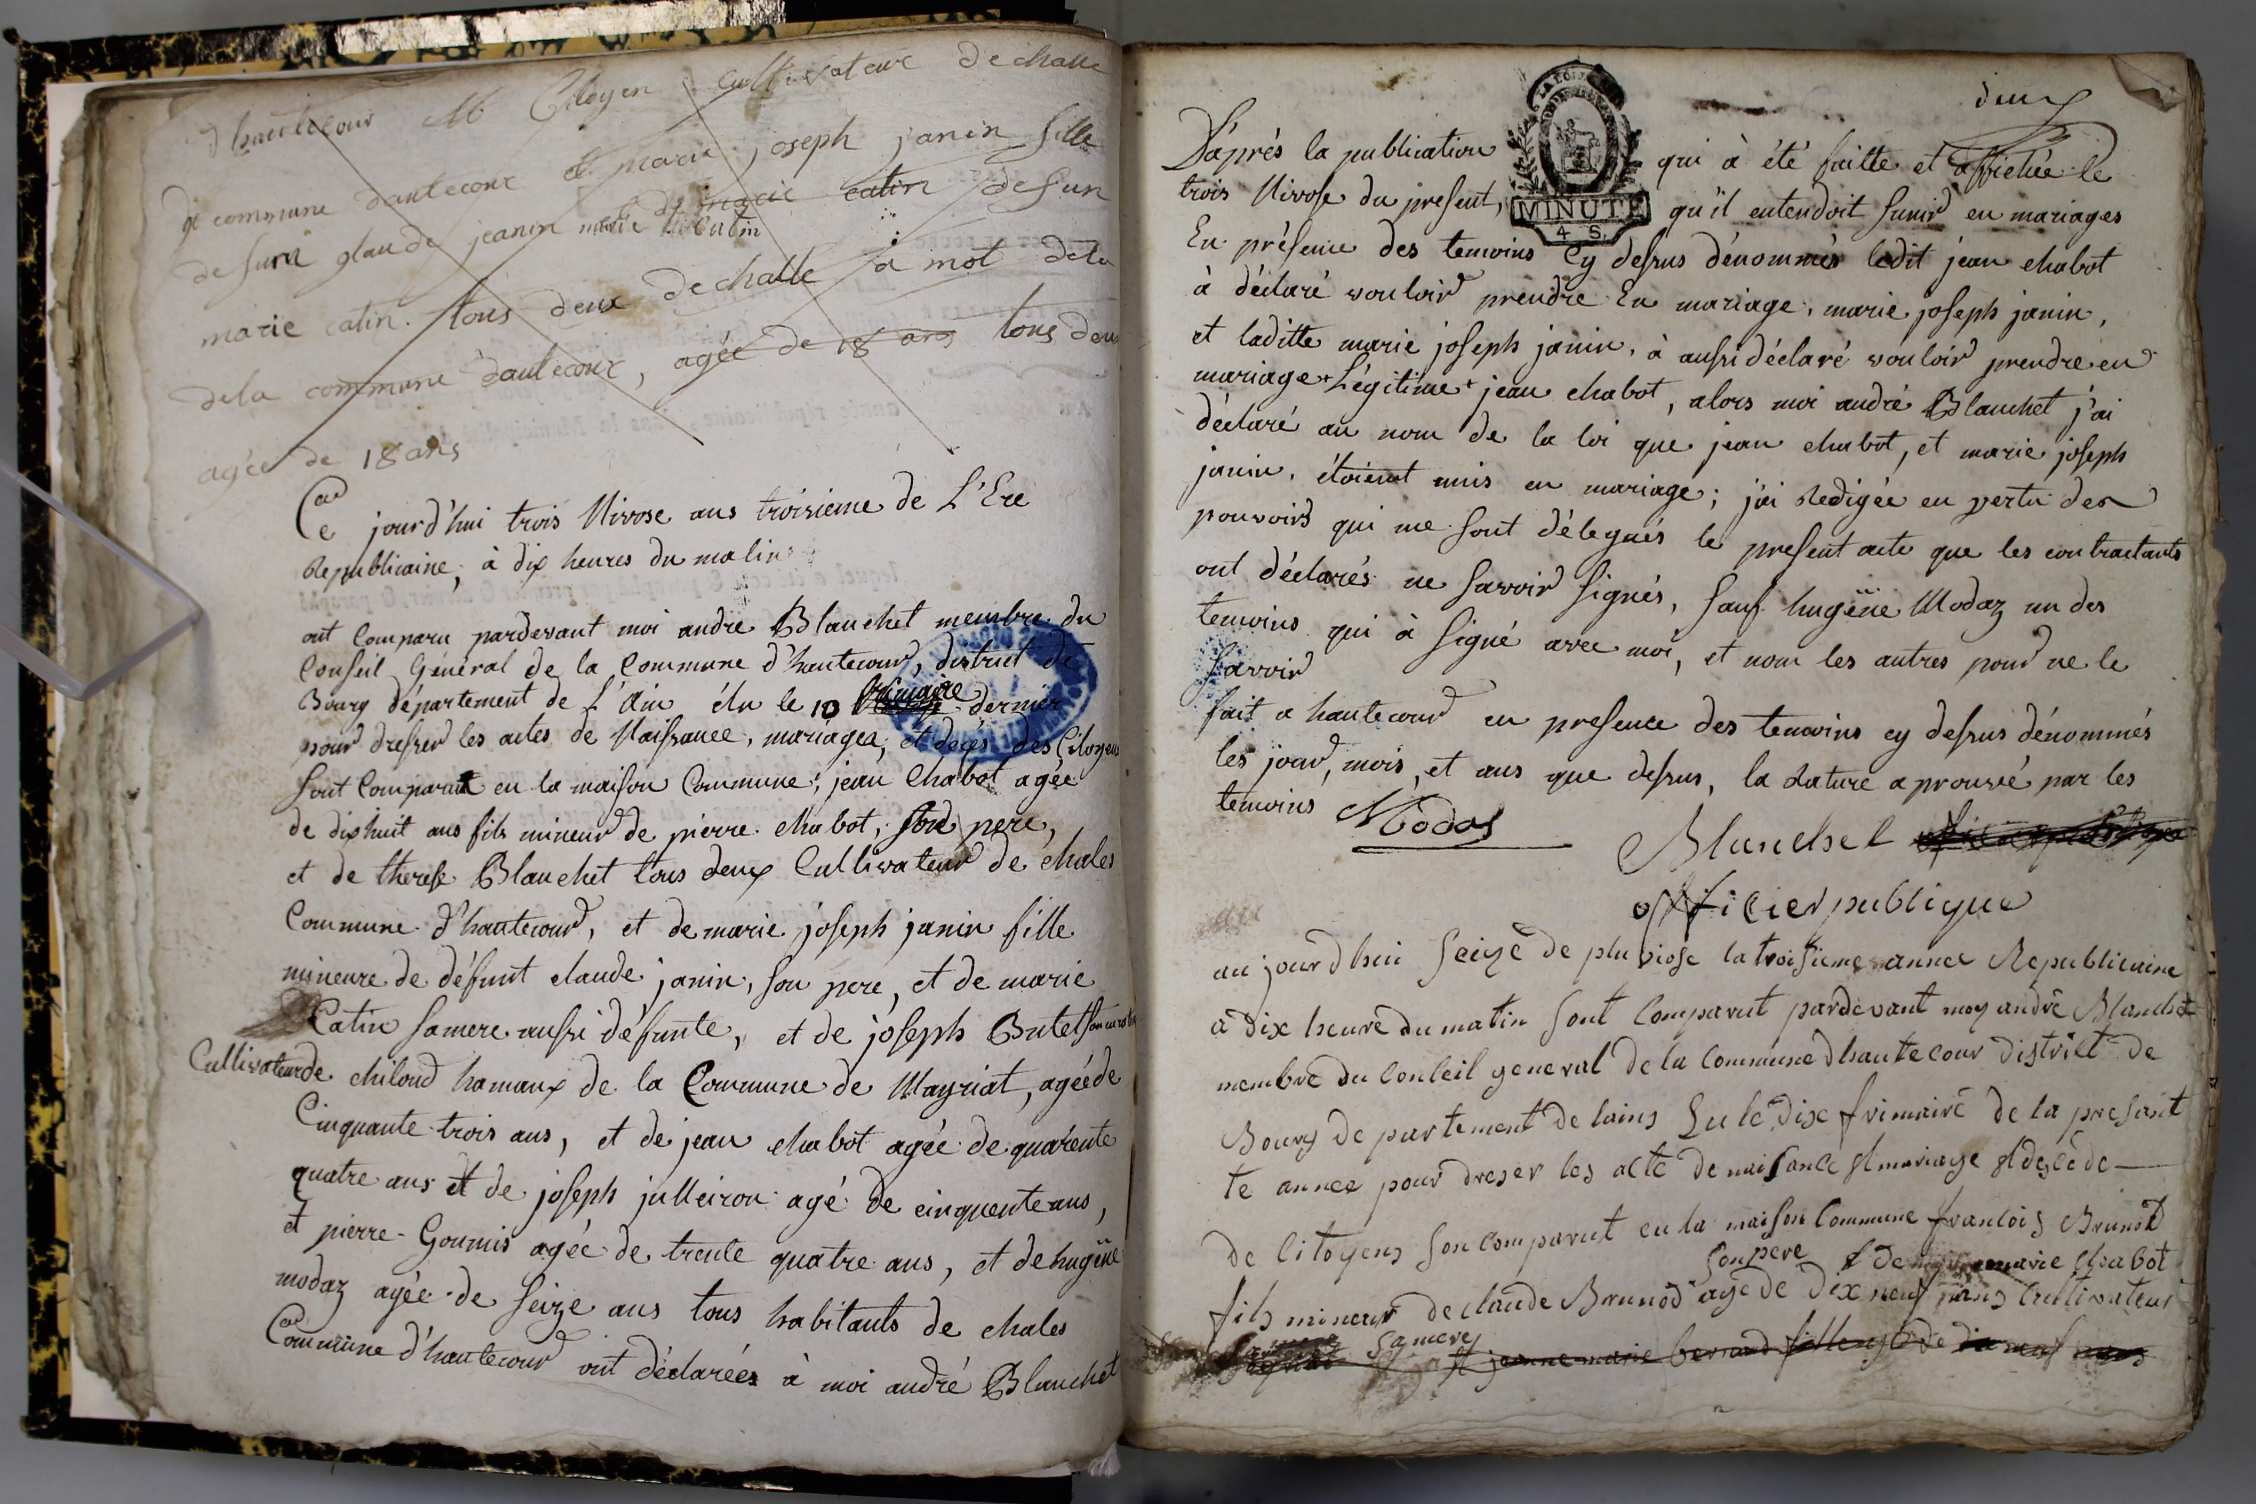 d hautecour M Citoyen Cultivateur De challe
de commune dautecour et marie joseph janin fille
de funt glaude jeanin marie catin de funt
marie catin. tous deux de challe a mot dela
dela commune dautecour, agée de 18 ans tous deux
agée de 18 ans
Ce jourd'hui trois Nivose ans troisieme de L'Ere
Republicaine, à dix heures du matin
ont Comparu pardevant moi andré Blanchet membre du
Conseil Général de la Commune d'hautecour, district de
Bourg département de L'Ain élu le 10 frimaire dernier
pour dresser les actes de Naissance, mariages, et décès des Citoyens
sont Comparut en la maison Commune, jean Chabot agée
de dixhuit ans fils mineur de pierre chabot, son pere,
et de therese Blanchet tous deux Cultivateur de chales
Commune d'hautecour, et de marie joseph janin fille
mineure de défunt claude janin, son pere, et de marie
Catin samere aussi défunte, et de joseph Butet
Cultivateur de chiloud hamaux de la Commune de Mayriat, agée de
Cinquante trois ans, et de jean chabot agée de quarente
quatre ans et de joseph julleiron agé de cinquente ans,
et pierre Goumis agée de trente quatre ans, et de hugëne
modaz agée de seize ans tous habitants de chales
Commune d'hautecour ont déclarées à moi andré Blanchet
deux
D'aprés la publication qui à été faitte et affichée le
trois Nivose du present, qu'il entendoit sunir en mariages
MINUTE
4 S.
En présence des temoins Cy dessus dénommés ledit jean chabot
à déclaré vouloir prendre En mariage, marie joseph janin,
et laditte marie joseph janin, à aussi déclaré vouloir prendre en
mariage + Légitime + jean chabot, alors moi andré Blanchet j'ai
déclaré au nom de la loi que jean chabot, et marie joseph
janin, étoient unis en mariage; j'ai Redigée en vertu des
pouvoirs qui me sont délegués le present acte que les contractants
ont déclarés ne savoir signés, sauf hugëne Modaz un des
temoins qui à signé avec moi, et nom les autres pour ne le
savoir
fait a hautecour en presence des temoins cy dessus dénommés
les jour, mois, et ans que dessus, la Rature aprouvé par les
temoins
Modas
Blanchet
officier publique
aujourdhui seize de pluviose la troisieme annee Republicaine
a dix heure du matin sont Comparut pardevant moy andrê Blanchet
membre du Conseil general de la Commune dhautecour district de
Bourg departement de lains Lu le dix frimaire de la presant
te annee pour dreser les acte de naisance et mariage et decè de
de Citoyens son comparut en la maison Commune francois Brunod
son pere & de marie chabot
fils mineur de claude Brunod age de dix neuf ans Cultivateur
samere
et jeanne marie bernard fille age de dix neuf ans